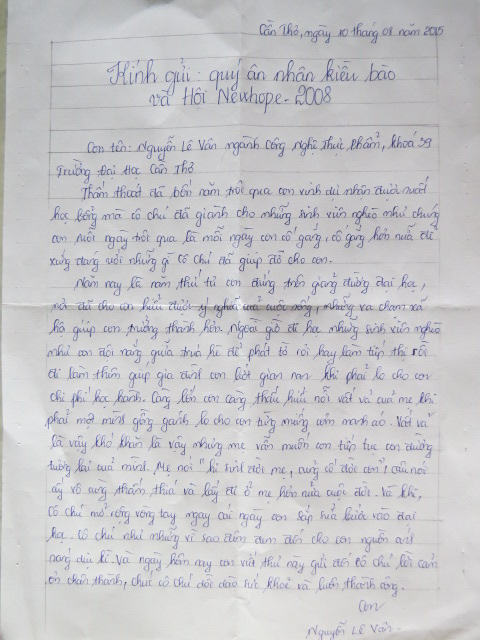 Cần Thơ, ngày 10 tháng 01 năm 2015
Kính gửi: quý ân nhân kiều bào
và Hội Newhope-2008
Con tên: Nguyễn Lê Vân ngành Công Nghệ Thực phẩm, khoá 39
Trường Đại Học Cần Thơ
Thấm thoát đã bốn năm trôi qua con vinh dự nhận được suất
học bổng mà cô chú đã giành cho những sinh viên nghèo như chúng
con. Mỗi ngày trôi qua là mỗi ngày con cố gắng, cố gắng hơn nữa để
xứng đáng với những gì cô chú đã giúp đỡ cho con.
Năm nay là năm thứ tư con đứng trên giảng đường đại học,
nó đã cho con hiểu được ý nghĩa của cuộc sống, những va chạm xã
hội giúp con trưởng thành hơn. Ngoài giờ đi học những sinh viên nghèo
như con đội nắng giữa trưa hè để phát tờ rơi hay làm tiếp thị rồi
đi làm thêm giúp gia đình con bớt gian nan khi phải lo cho con
chi phí học hành. Càng lớn con càng thấu hiểu nỗi vất vả của mẹ khi
phải một mình gồng gánh lo cho con từng miếng cơm manh áo. Vất vả
là vậy khó khăn là vậy nhưng mẹ vẫn muốn con tiếp tục con đường
tương lai của mình. Mẹ nói "hi sinh đời mẹ, củng cố đời con" câu nói
ấy vô cùng thấm thía và lấy đi ở mẹ hơn nửa cuộc đời. Và khi,
cô chú mở rộng vòng tay ngay cái ngày con sắp sửa bước vào đại
học. Cô chú như những vì sao đêm đem đến cho con nguồn ánh
sáng diệu kì. Và ngày hôm nay con viết thư này gửi đến cô chú lời cảm
ơn chân thành, chúc cô chú dồi dào sức khoẻ và luôn thành công.
Con
Nguyễn Lê Vân